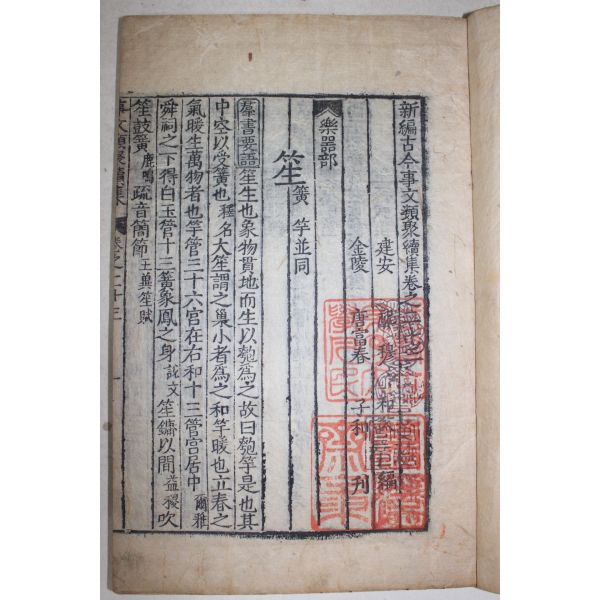 新編古今事文類聚續集卷之
建安 祝 穆 和父 編
金陵 唐富春 子和 刊
樂器部
笙 簧 竽並同
羣書要語 笙生也象物貫地而生以匏為之故曰匏竽是也其
中空以受簧也 釋名 大笙謂之巢小者為之和竽暖也立春之
氣暖生萬物者也竽管三十六宮在右和十三管宮居中 爾雅
舜祠之下得白玉管十三簧象鳳之身 說文 笙鏞以間 益稷 吹
笙鼓簧 鹿鳴 疏音簡節 王襄笙賦
事文類聚續集 卷之二十三 一